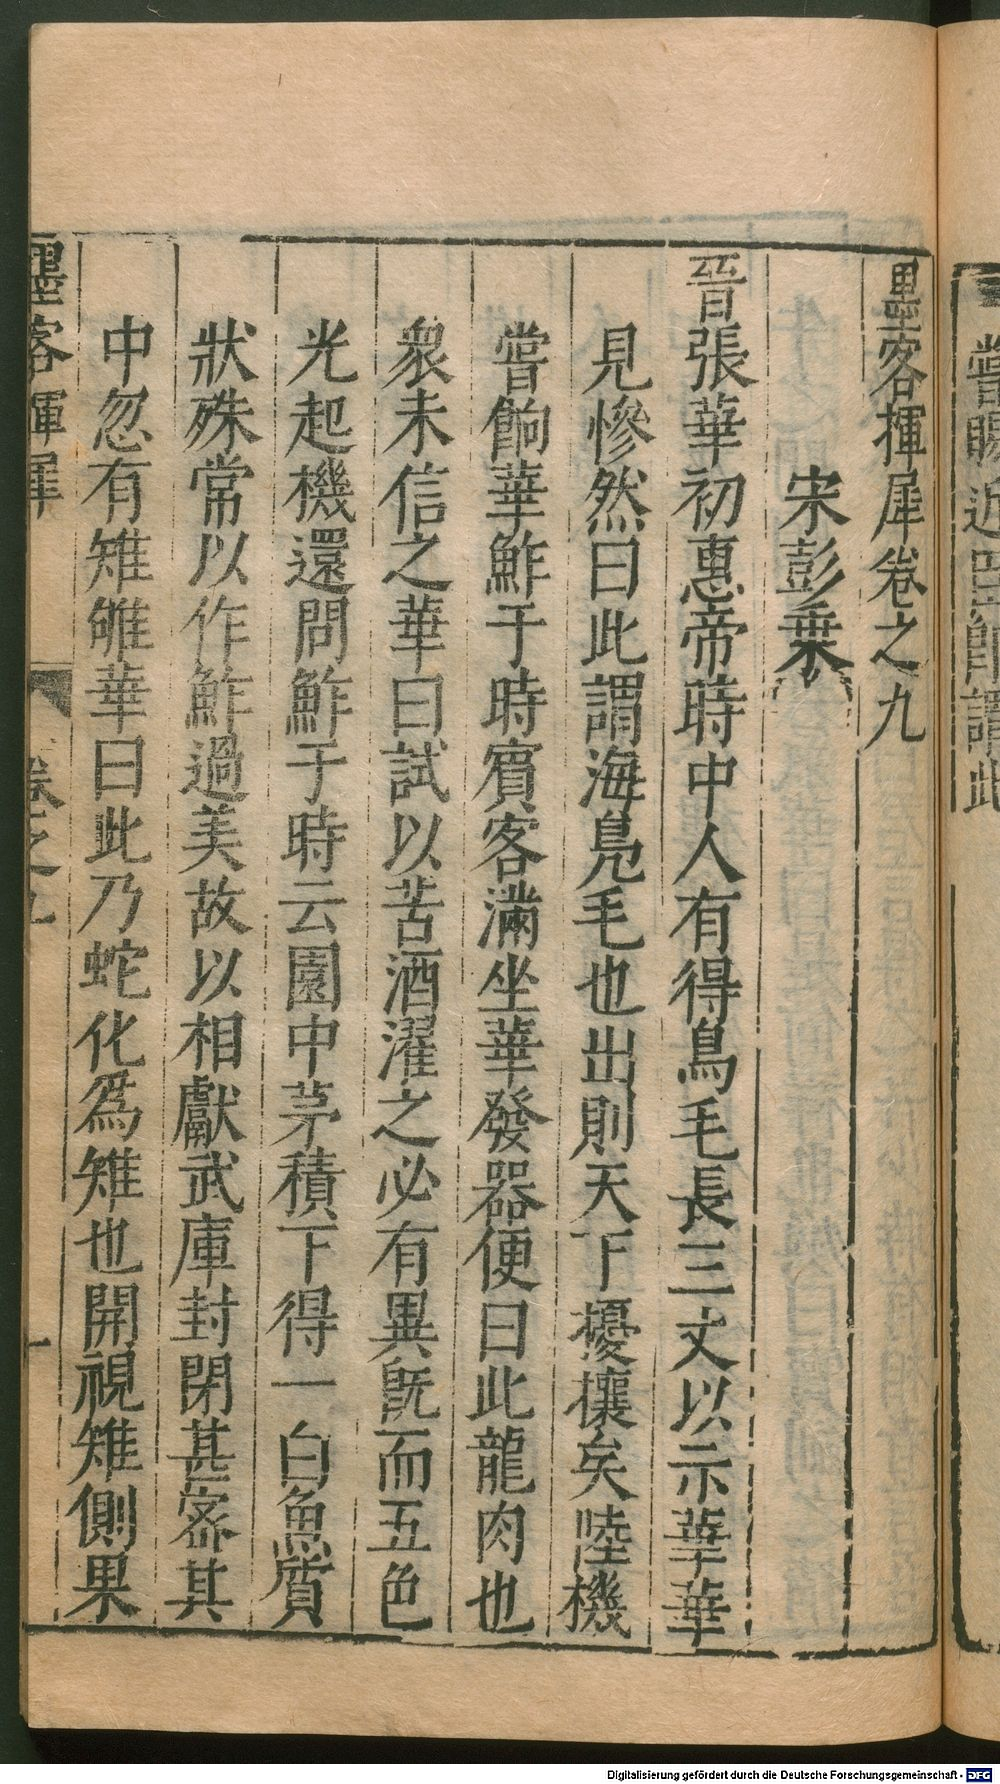 嘗賜近
墨客揮犀卷之九
宋彭乗
晉張華初惠帝時中人有得鳥毛長三丈以示華華
見慘然曰此謂海鳧毛也出則天下擾攘矣陸機
嘗餉華鮓于時賔客滿坐華發器便曰此龍肉也
衆未信之華曰試以苦酒濯之必有異旣而五色
光起機還問鮓于時云園中茅積下得一白魚質
狀殊常以作鮓過美故以相獻武庫封閉甚宻其
中忽有雉雊華曰此乃蛇化爲雉也開視雉側果
墨客揮犀 卷之九 一
Digitalisierung gefördert durch die Deutsche Forschungsgemeinschaft - DFG